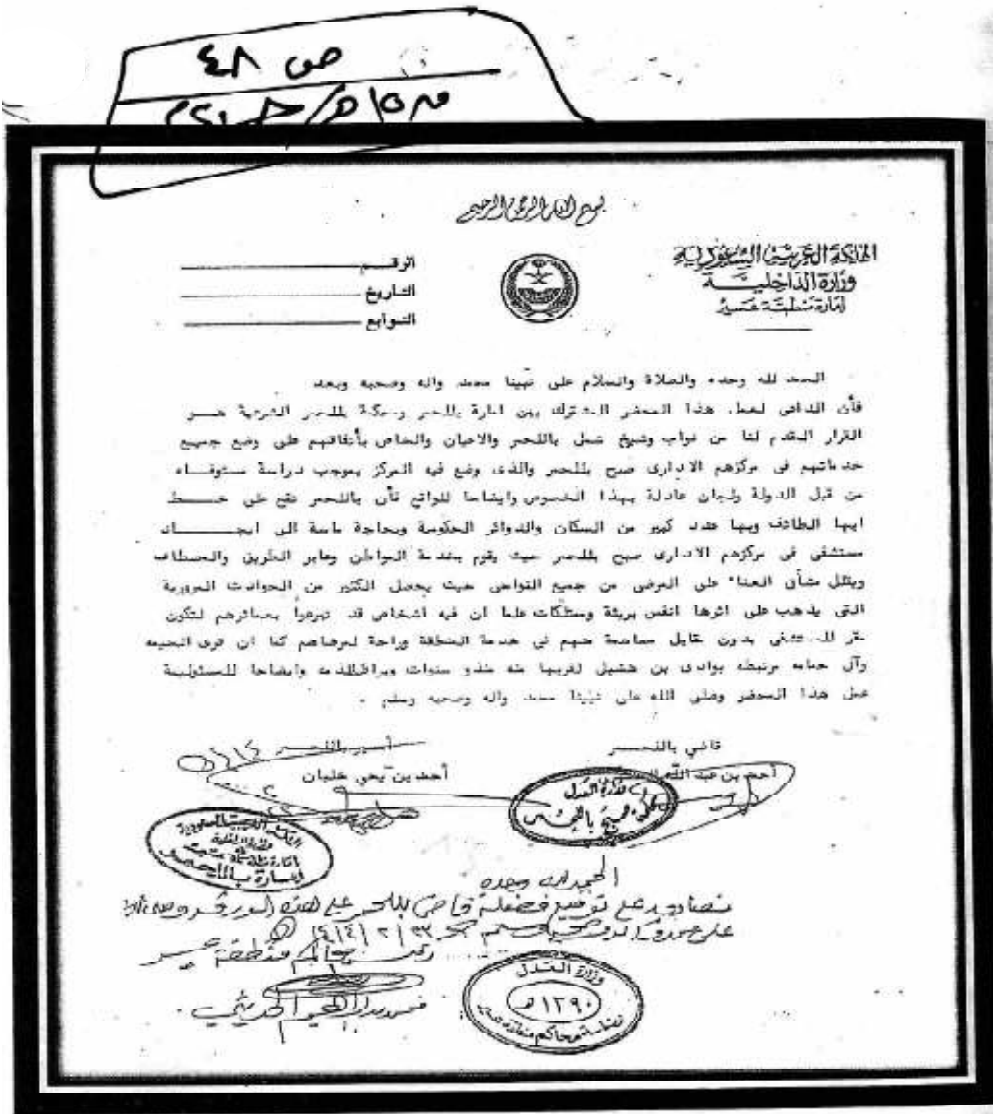 ص ٤٨
بسم الله الرحمن الرحيم
المملكة العربية السعودية
وزارة الداخلية
امارة منطقة عسير
الرقم
التاريخ
التوابع
الحمد لله وحده والصلاة والسلام على نبينا محمد واله وصحبه وبعد
فأن الداعى لعمل هذا المحضر المشترك بين امارة بللحمر ومحكمة بللحمر الشرعية هــو
القرار المقدم لنا من نواب وشيخ شمل باللحمر والاعيان والخاص بأتفاقهم على وضع جميع
خدماتهم فى مركزهم الادارى صبح بللحمر والذى وضع فيه المركز بموجب دراسة مستوفــاه
من قبل الدولة ولجان عادلة بهذا الخصوص وايضاحا للواقع فأن باللحمر تقع على خــط
ابها الطائف وبها عدد كبير من السكان والدوائر الحكومة وبحاجة ماسة الى ايجــاد
مستشفى فى مركزهم الادارى صبح بللحمر حيث يقوم بخدمة المواطن وعابر الطريق والمصطاف
ويقلل العناء على المرضى من جميع النواحى حيث يحصل الكثير من الحوادث المرورية
التى يذهب على اثرها انفس بريئة وممتلكات علما ان فيه اشخاص قد تبرعوا بعمائرهم لتكون
مقر للمستشفى بدون مقابل مساهمة منهم فى خدمة المنطقة وراحة لمرضاهم كما ان قرى
وآل مرتبطه بوادى بن هشبل لقربها منه منذو سنوات وايضاحا للمسئولية
عمل هذا المحضر وصلى الله على نبينا محمد واله وصحبه وسلم .
قاضي باللحمر
أمير باللحمر
أحمد بن عبد الله
أحمد بن يحي علبان
وزارة العدل
المملكة العربية السعودية
وزارة الداخلية
الحمد لله وحده
توقيع فضيلة قاضي بللحمر على هذه
رئيس محاكم منطقة عسير
وزارة العدل
١٣٩٠هـ
رئاسة محاكم منطقة عسير